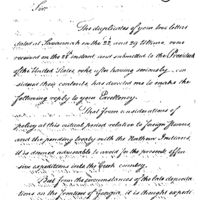 Sir
The duplicates of your two letters
dated at Savannah on the 22 and 29 Ultimo, were
received on the 28 instant and submitted to the President
of the United States, who after having seriously con-
sidered their contents, has directed me to make the
following reply to your Excellency.
That from considerations of
policy at this critical period relative to foreign Powers
and the pending treaty with the Northern Indians,
it is deemed adviseable to avoid for the present offen-
sive expeditions into the Creek country.
But from the circumstances of the late depreda-
tions on the frontiers of Georgia, it is thought expedi-